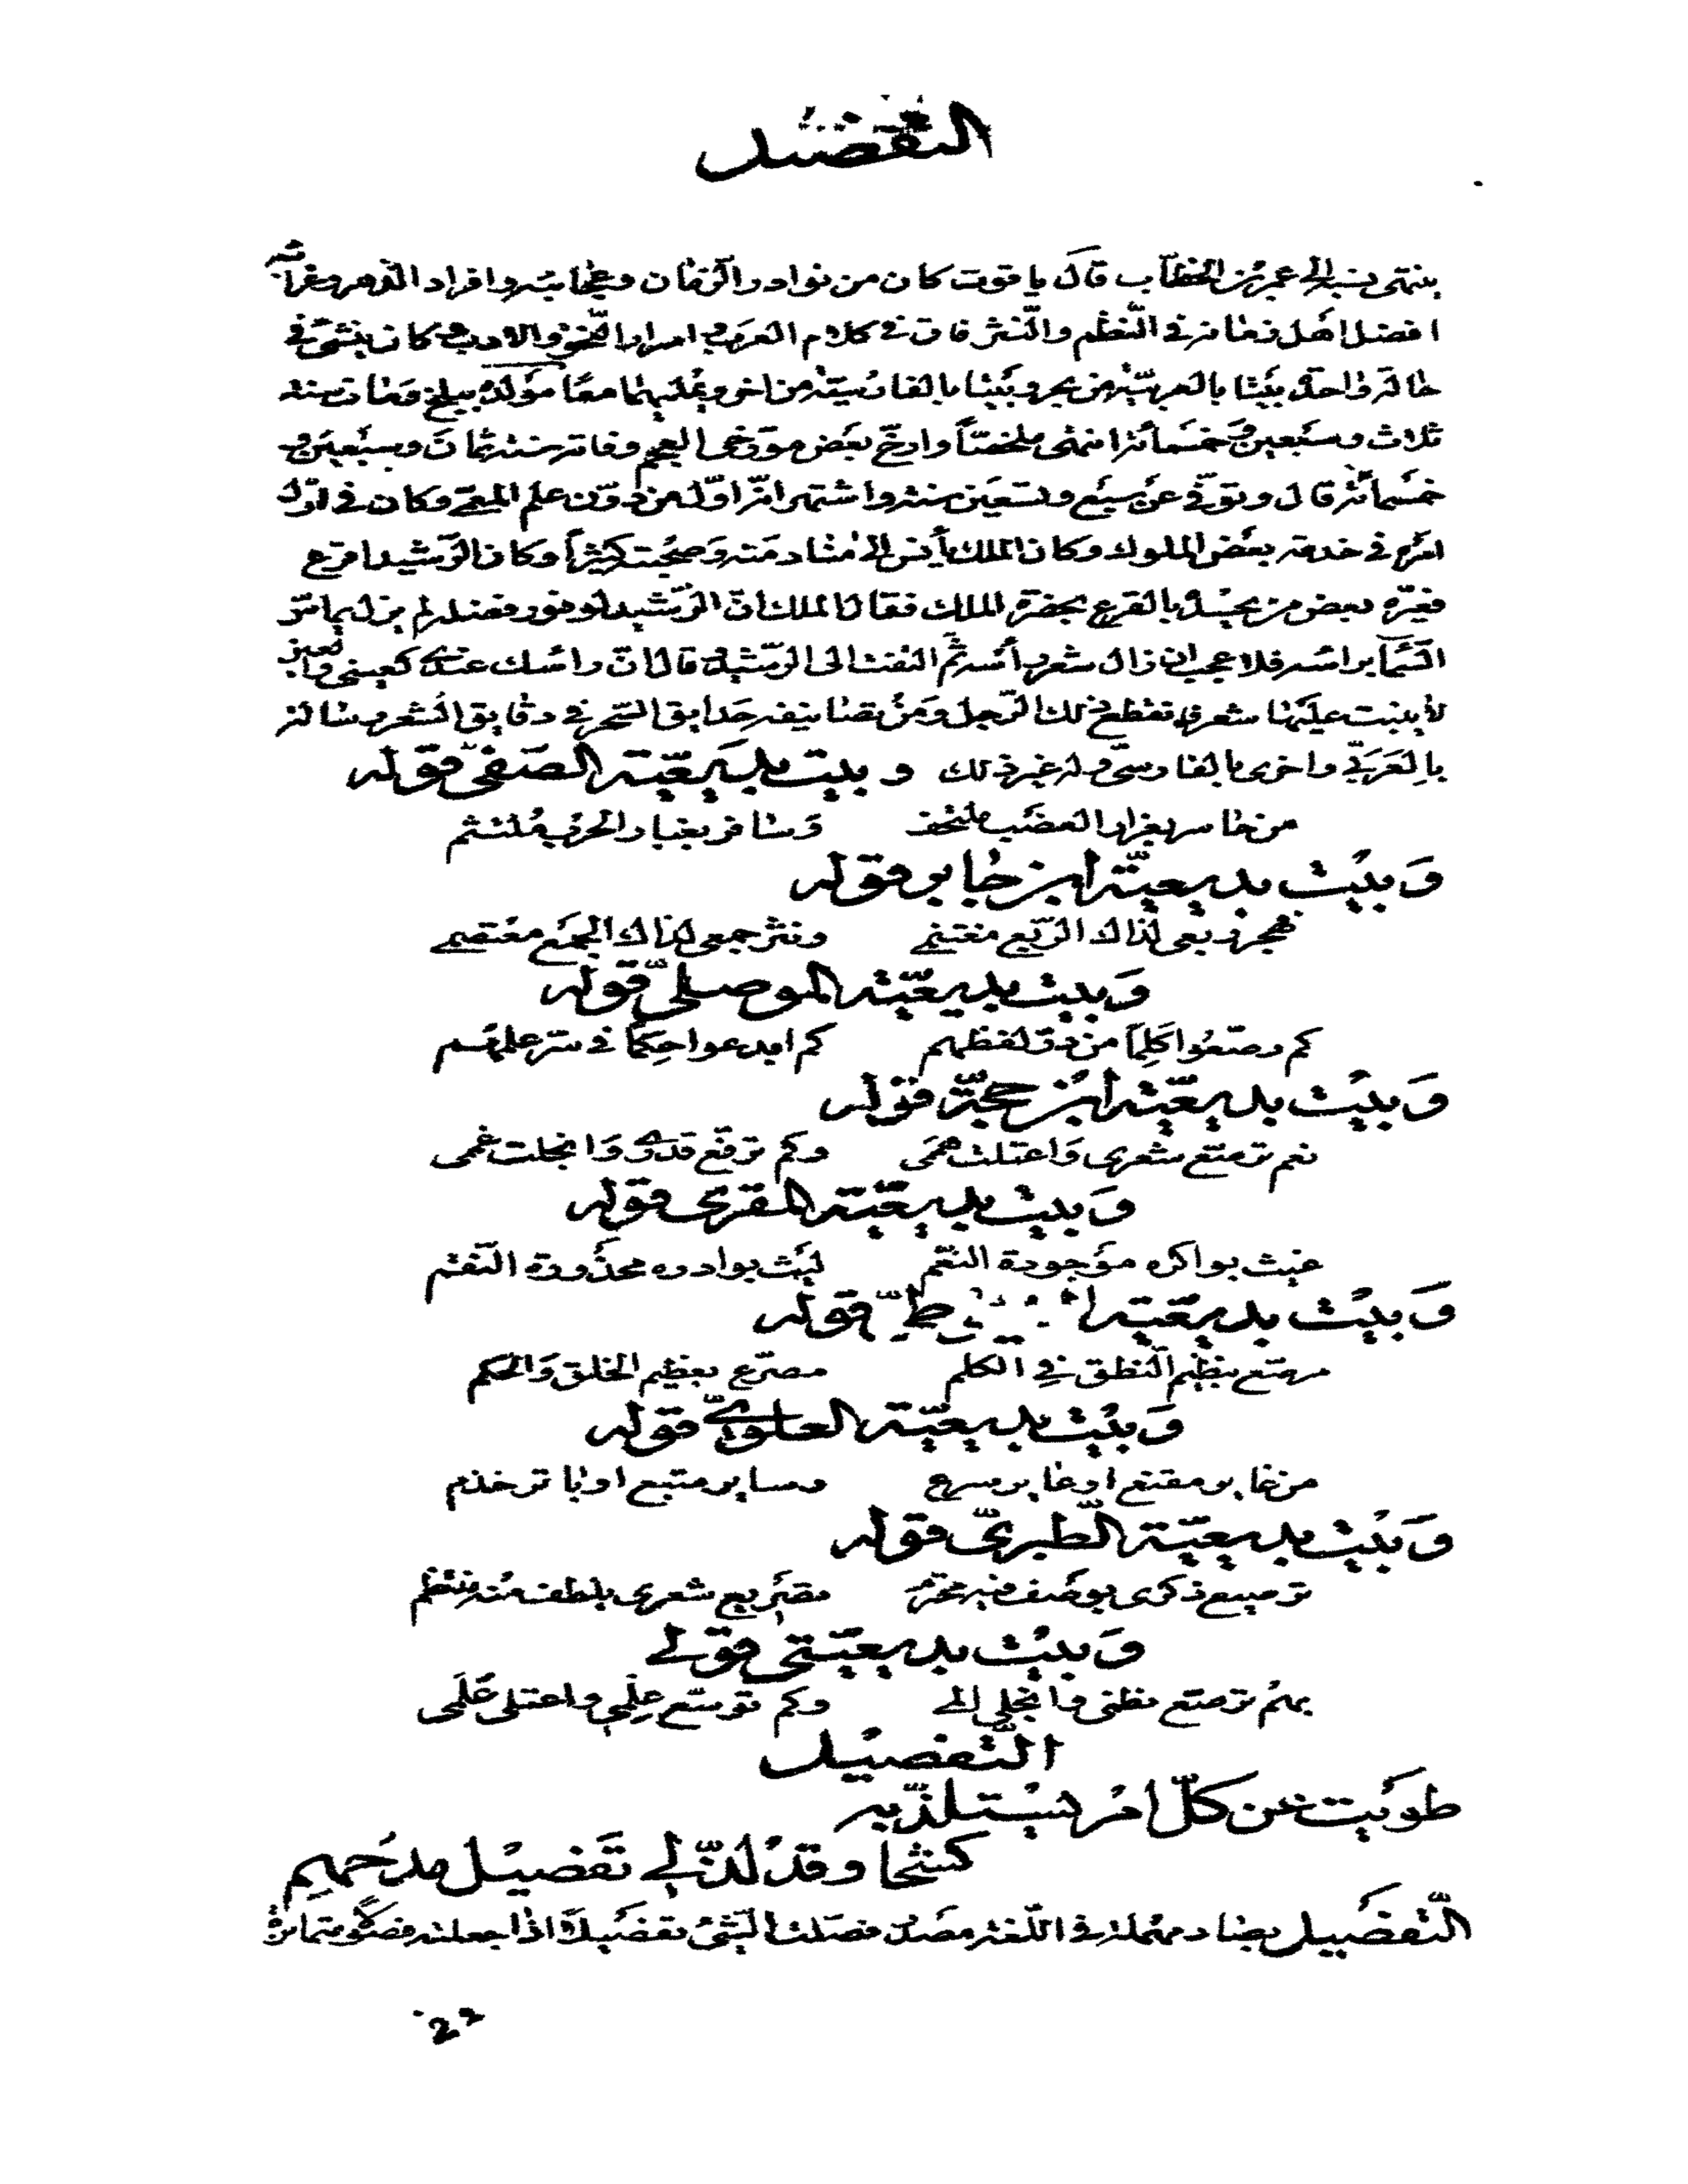 التفضيل
ينتمى نسبه الى عمر بن الخطاب قال ياقوت كان من نوادر الزمان وعجايبه وافراد الدهر وغرائبه
افضل اهل زمانه فى النظم والنثر فاق فى كلام العرب واسرار النحو والادب وكان ينشئ فى
حالة واحدة بيتا بالعربية من بحر وبيتا بالفارسية من اخر ويمليهما معا مولده ببلخ ومات سنة
ثلاث وسبعين وخمسمائة انتهى ملخصا وارخ بعض مورخى العجم وفاته سنة ثمان وسبعين و
خمسمائة قال وتوفى عن سبع وتسعين سنة واشتهر انه اول من دون علم المعمى وكان فى اول
امره فى خدمة بعض الملوك وكان الملك يأنس الى منادمته وصحبته كثيرا وكان الرشيد اقرع
فعيره بعض من يحسده بالقرع بحضرة الملك فقال الملك ان الرشيد لوفور فضله لم يزل يماس
السماء براسه فلا عجب ان زال شعر رأسه ثم التفت الى الرشيد وقال ان راسك عندى كعينى والعين
لا ينبت عليها شعر فانقطع ذلك الرجل ومن تصانيفه حدايق السحر فى دقايق الشعر ورسالة
بالعربى واخرى بالفارسى وله غير ذلك وبيت بديعية الصفى قوله
من خاسر بغرار العضب ملتحف وسافر بغبار الحرب ملتثم
وبيت بديعية ابن جابر قوله
فهجر ربعى لذاك الربع مغتنمى ونثر جمعى لذاك الجمع معتصمى
وبيت بديعية الموصلى قوله
كم رصعوا كلما من در لفظهم كم ابدعوا حكما فى سر علمهم
وبيت بديعية ابن حجة قوله
نعم ترصع شعرى واعتلت هممى وكم ترفع قدرى وانجلت غممى
وبيت بديعية المقرى قوله
غيث بواكره موجودة النعم ليث بوادره محذورة النقم
وبيت بديعية السيوطى قوله
مرصع بنظيم النطق فى الكلم مصرع بعظيم الخلق والحكم
وبيت بديعية العلوى قوله
وبيت بديعية الطبرى قوله
ترصيع ذكرى بوصف فيه محترم تصريع شعرى بلطف منه منتظم
وبيت بديعيتى قولى
بهم ترصع نظمى وانجلى المى وكم توسع علمى واعتلى علمى
التفضيل
طويت عن كل امر يستلذ به
كشحا وقد لذ لى تفضيل مدحهم
التفصيل بصاد مهملة فى اللغة مصدر فصلت الشئ تفصيلا اذا جعلته فصولا متمايزة